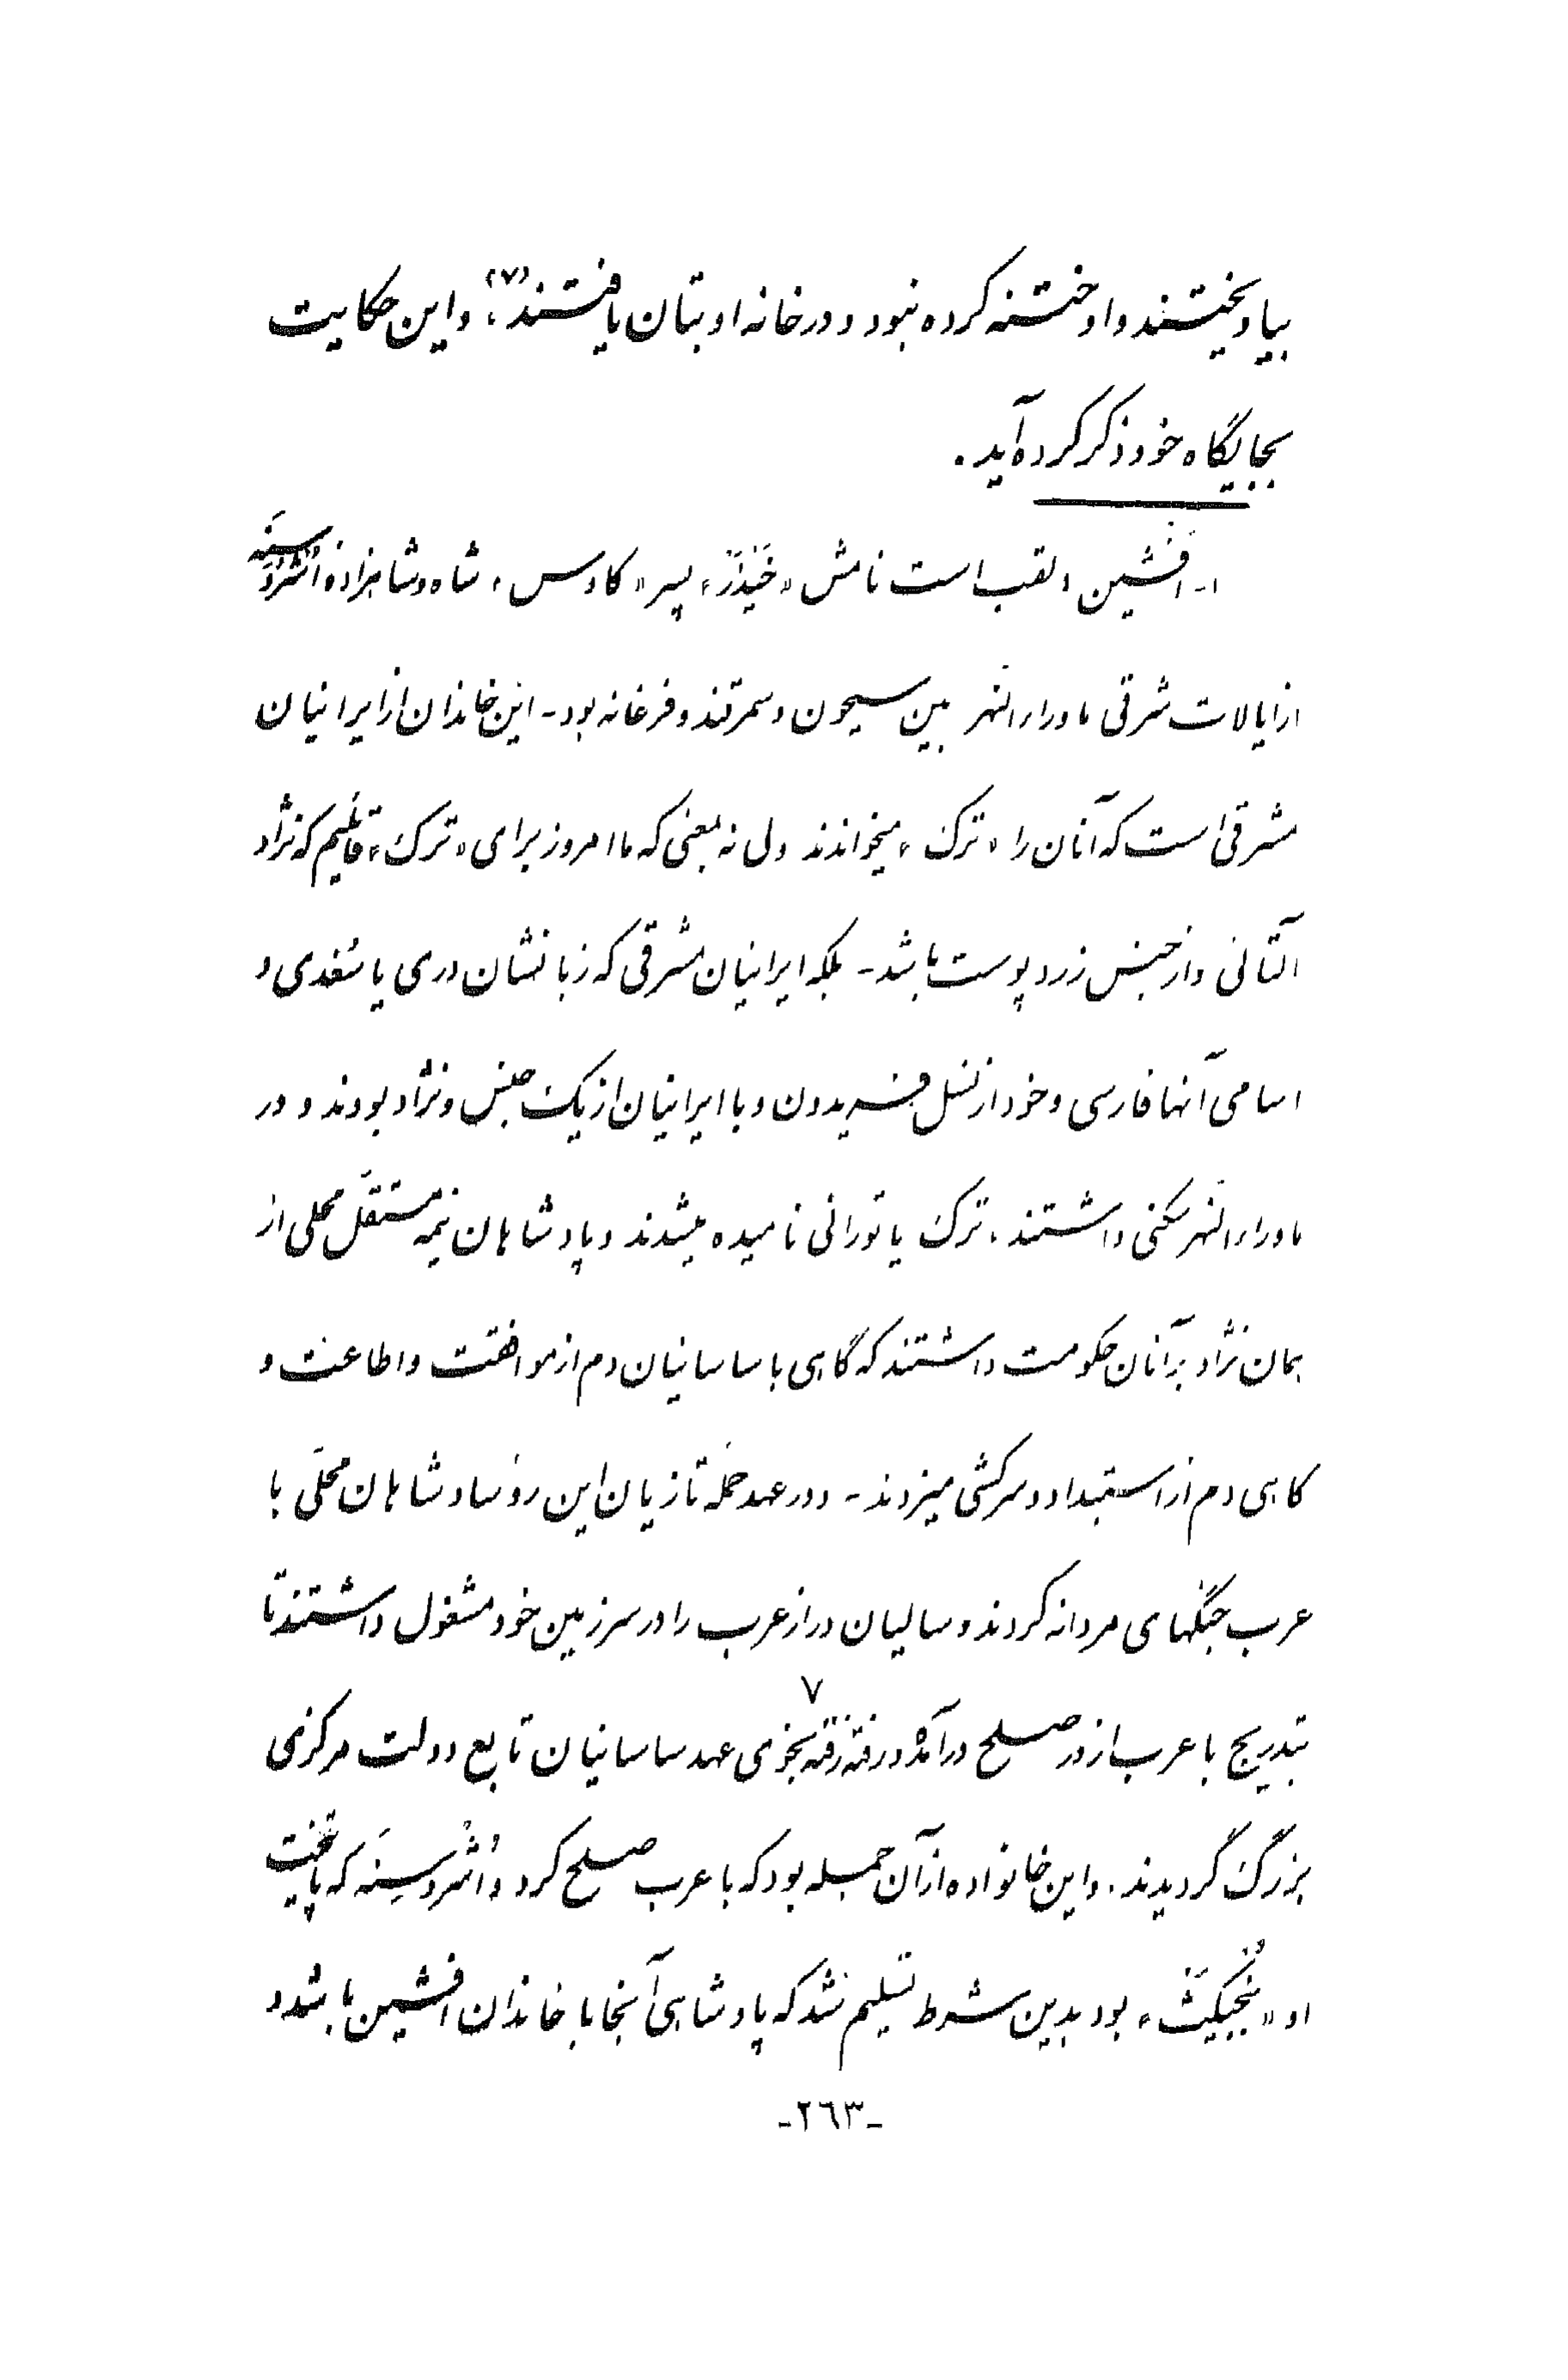 بیاویختند و او ختنه کرده نبود و در خانه او بتان یافتند(۷)، و این حکایت
بجایگاه خود ذکر کرده آید.
۱- اَفشین، لقب است نامش «خَیذَر» پسر «کاوس» شاه و شاهزادهٔ اُشرُوسَنَه
از ایالات شرقی ماوراء النهر بین سیحون و سمرقند و فرغانه بود- این خاندان از ایرانیان
مشرقی است که آنان را «ترک» میخواندند ولی نه بمعنی که ما امروز برای «ترک» قائلیم که نژاد
آلتائی و از جنس زرد پوست باشد- بلکه ایرانیان مشرقی که زبانشان دری یا سُغدی و
اسامی آنها فارسی و خود از نسل فریدون و با ایرانیان از یک جنس و نژاد بودند و در
ماوراءالنهر سکنی داشتند، ترک یا تورانی نامیده میشدند و پادشاهان نیمه مستقلّ محلی از
همان نژاد برآنان حکومت داشتند که گاهی با ساسانیان دم از موافقت و اطاعت و
گاهی دم از استبداد و سرکشی میزدند- و در عهد حملهٔ تازیان این رؤسا و شاهان محلّی با
عرب جنگهای مردانه کردند و سالیان دراز عرب را در سرزمین خود مشغول داشتند تا
بتدریج با عرب از در صلح درآمده و رفته رفته بخوی عهد ساسانیان تابع دولت مرکزی
۷
بزرگ گردیدند. و این خانواده از آن جمله بود که با عرب صلح کرد و اُشرُوسَنه که پایتخت
او «بُنجیکَث» بود بدین شرط تسلیم شد که پادشاهی آنجا با خاندان افشین باشد و
-۲۶۳-